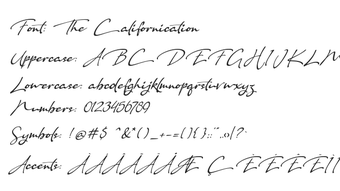 Font: The Californication
Uppercase: A B C D E F G H I J K L M
Lowercase: abcdefghijklmnopqrstuvwxyz
Numbers: 0123456789
Symbols: !@#$ ^&*()_+-=()[]::"..o|?
Accents: À Á Â Ã Ä Å Æ Ç È É Ê Ë Ì Í